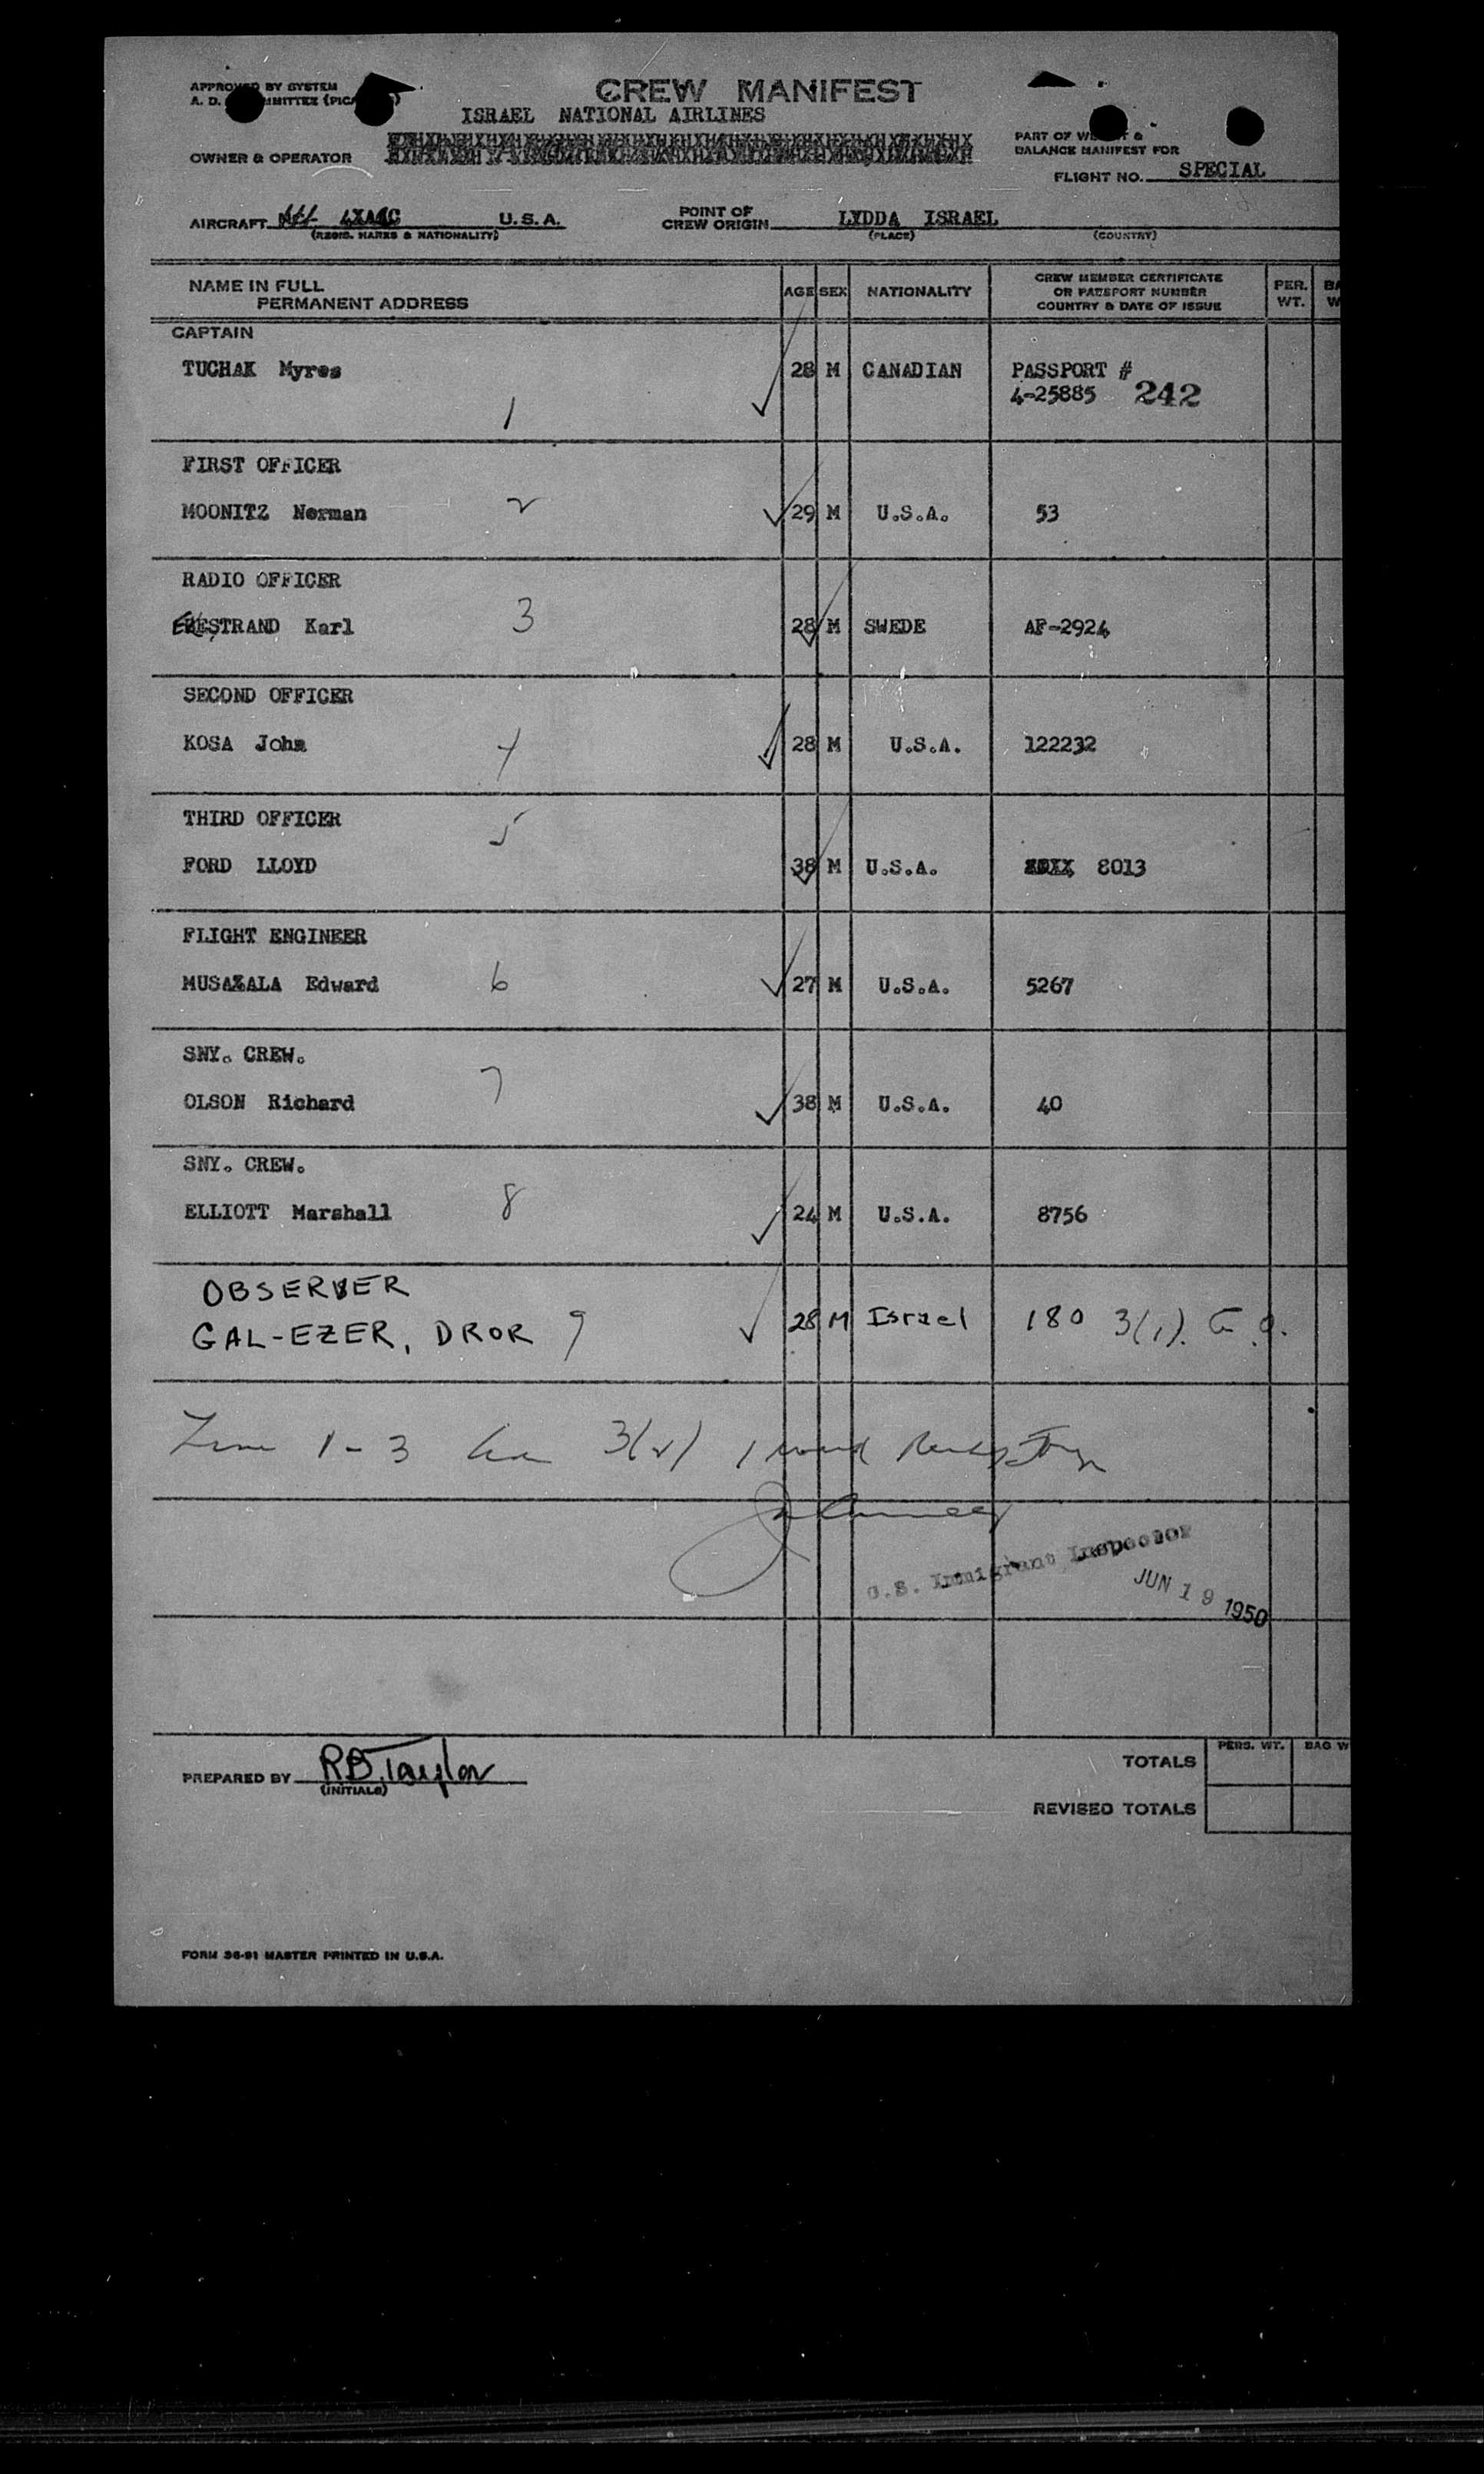 APPROVED BY SYSTEM
A. D.
CREW MANIFEST
ISRAEL NATIONAL AIRLINES
OWNER & OPERATOR
PART OF
BALANCE MANIFEST FOR
FLIGHT NO. SPECIAL
AIRCRAFT U.S.A.
(REGIS. MARKS & NATIONALITY)
POINT OF
CREW ORIGIN LYDDA ISRAEL
(PLACE) (COUNTRY)
NAME IN FULL
PERMANENT ADDRESS
AGE SEX NATIONALITY
CREW MEMBER CERTIFICATE
OR PASSPORT NUMBER
COUNTRY & DATE OF ISSUE
PER.
WT.
CAPTAIN
TUCHAK Myres 28 M CANADIAN PASSPORT #
1 4-25885 242
FIRST OFFICER
MOONITZ Norman 2 29 M U.S.A. 53
RADIO OFFICER
Karl 3 28 M SWEDE AF-2924
SECOND OFFICER
KOSA John 4 28 M U.S.A. 122232
THIRD OFFICER
FORD LLOYD 5 38 M U.S.A. 8013
FLIGHT ENGINEER
Edward 6 27 M U.S.A. 5267
SNY. CREW.
OLSON Richard 7 38 M U.S.A. 40
SNY. CREW.
ELLIOTT Marshall 8 24 M U.S.A. 8756
OBSERVER
GAL-EZER, DROR 9 28 M Israel 180 3(1).
1-3
U.S. Immigrant Inspector
JUN 19 1950
PREPARED BY R.D. Taylor
(INITIALS)
TOTALS
PERS. WT. BAG W
REVISED TOTALS
FORM 36-91 MASTER PRINTED IN U.S.A.